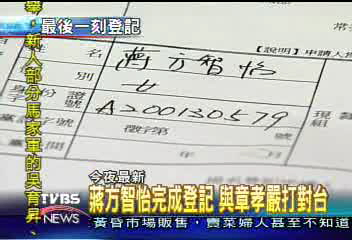 最後一刻登記
舉,新人部分馬家軍的吳育昇,
【說明】申請人
蔣方智怡
別
女
A200130579
徵字第
號
現
今夜最新
蔣方智怡完成登記 與章孝嚴打對台
TVBS
NEWS
黃昏市場販售,賣菜婦人甚至不知道